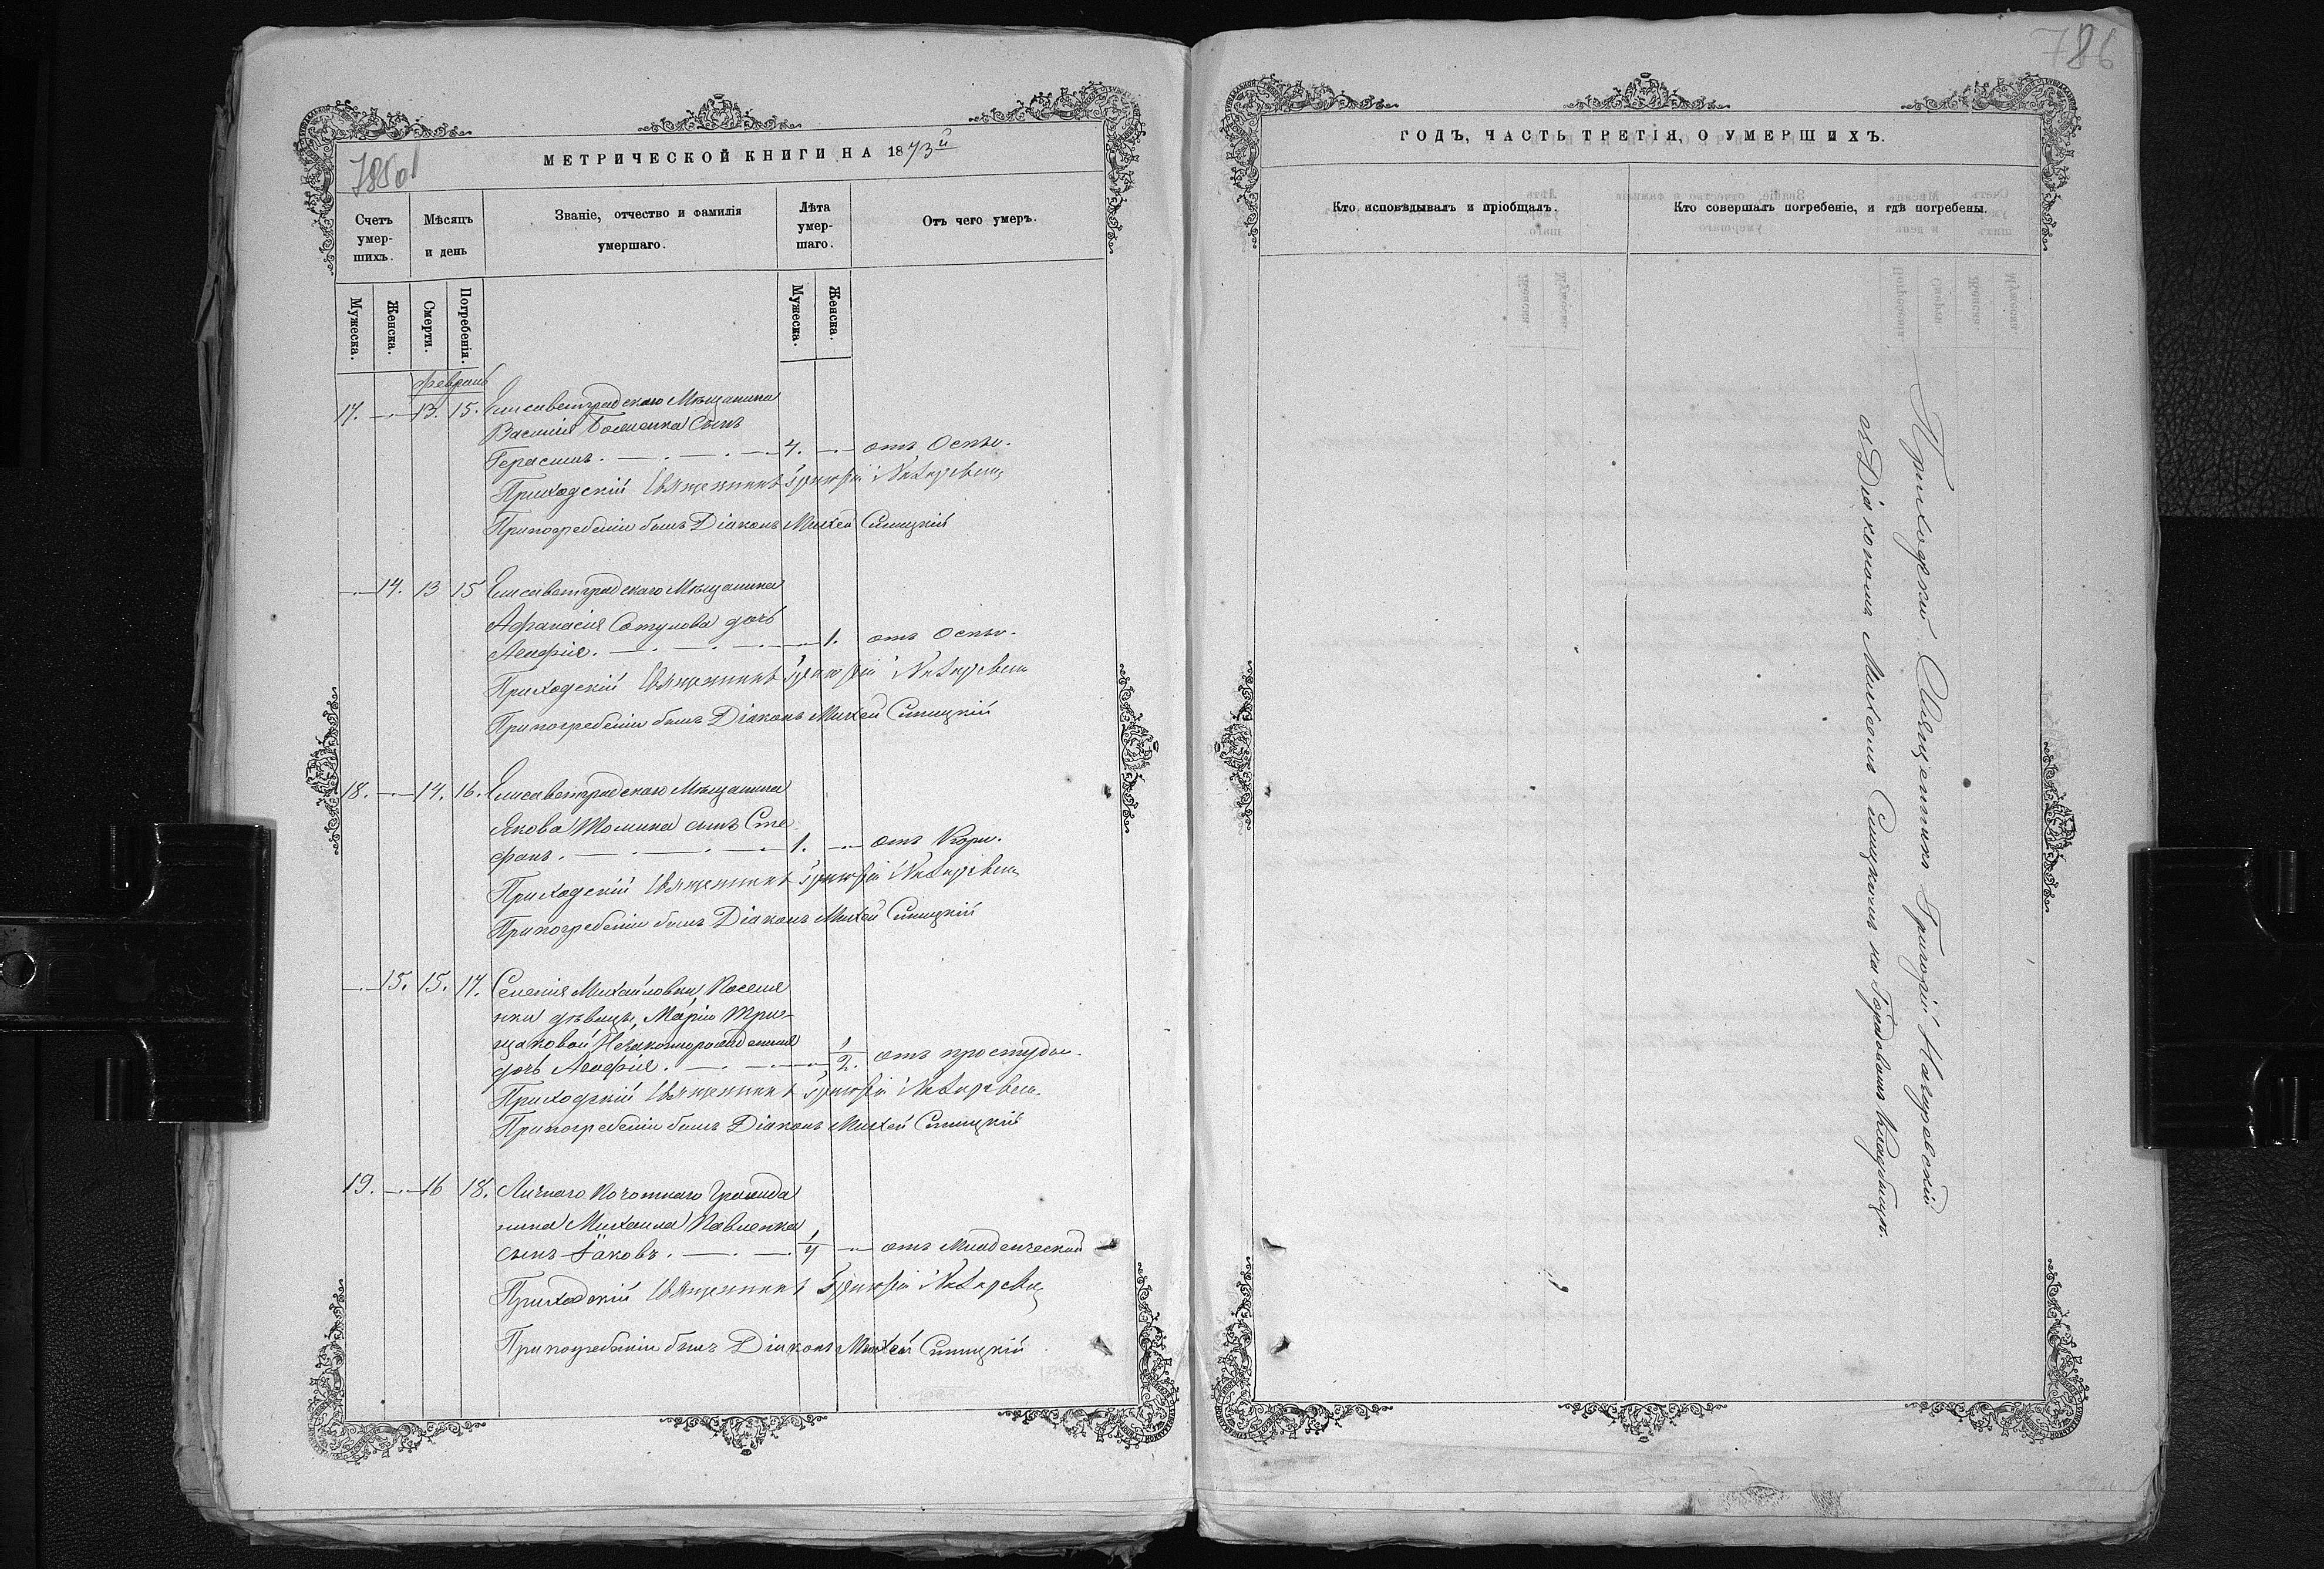 786
785об
МЕТРИЧЕСКОЙ КНИГИ НА 1873й
Счетъ умер-шихъ.
Мѣсяцъ и день
Званіе, отчество и фамилія умершаго.
Лѣта умер-шаго.
Отъ чего умеръ.
Мужеска.
Женска.
Смерти.
Погребенія.
Мужеска.
Женска.
Февраль
17. 13. 15. Елисаветградскаго Мѣщанина
Василія сынъ
Герасимъ. 4. отъ Оспы.
Приходскій Священникъ Григорій Мачуревскій
При погребеніи былъ Діаконъ Михей Синицкій
14. 13 15 Елисаветградскаго Мѣщанина
Афанасія дочь
Агафія. 1. отъ Оспы.
Приходскій Священникъ Григорій Мачуревскій
При погребеніи былъ Діаконъ Михей Синицкій
18. 14. 16. Елисаветградскаго Мѣщанина
Якова Томина сынъ Сте
фанъ. 1. отъ Кори.
Приходскій Священникъ Григорій Мачуревскій
При погребеніи былъ Діаконъ Михей Синицкій
15. 15. 17. Селенія Михайловки, Поселя
нки дѣвицы, Маріи Три-
щаковой Незаконнорожденная
дочь Агафія. 1/2. отъ простуды.
Приходскій Священникъ Григорій Мачуревскій
При погребеніи былъ Діаконъ Михей Синицкій
19. 16 18. Личнаго Почотнаго Гражда
нина Михаила Павленка
сынъ Іаковъ. 1/4 отъ Младенческой
Приходскій Священникъ Григорій Мачуревскій
При погребеніи былъ Діаконъ Михей Синицкій
ГОДЪ, ЧАСТЬ ТРЕТІЯ, О УМЕРШИХЪ.
Кто исповѣдывалъ и пріобщалъ.
Кто совершалъ погребеніе, и гдѣ погребены.
Приходскій Священникъ Григорій Мачуревскій
съ Діакономъ Михеемъ Синицкимъ на Градовомъ Кладбищѣ.